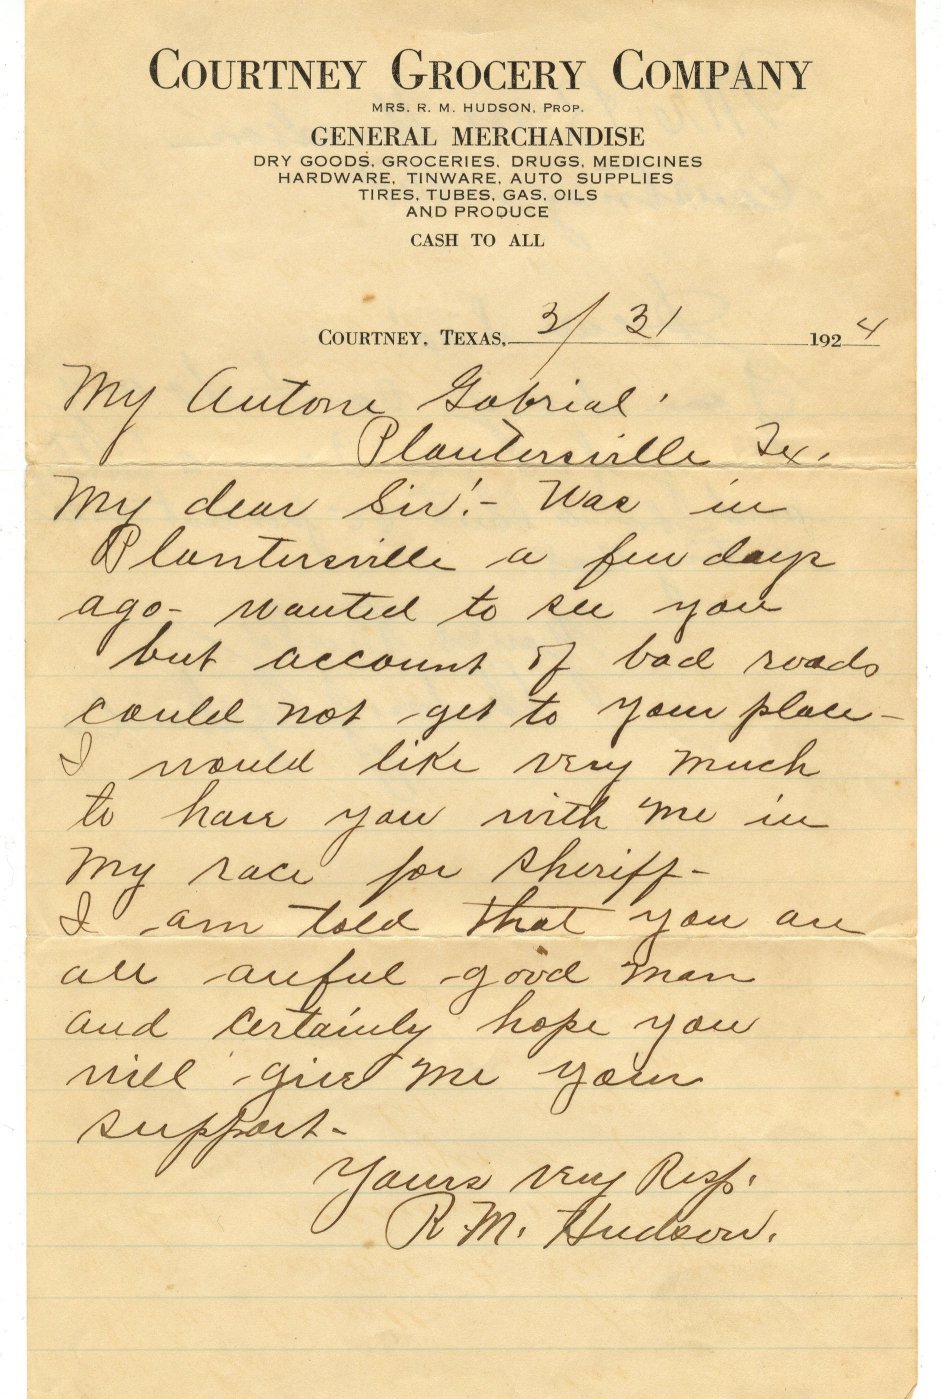 COURTNEY GROCERY COMPANY
MRS. R. M. HUDSON, PROP.
GENERAL MERCHANDISE
DRY GOODS, GROCERIES, DRUGS, MEDICINES
HARDWARE, TINWARE, AUTO SUPPLIES
TIRES, TUBES, GAS, OILS
AND PRODUCE
CASH TO ALL
COURTNEY, TEXAS, 3/31 1924
My Antone Gabrial.
Plantersville Tex.
My dear Sir!- Was in
Plantersville a few days
ago- wanted to see you
but account of bad roads
could not get to your place-
I would like very much
to have you with me in
my race for sheriff-
I am told that you are
all awful good man
and certainly hope you
will give me your
support-
Yours very Resp.
R.M. Hudson.